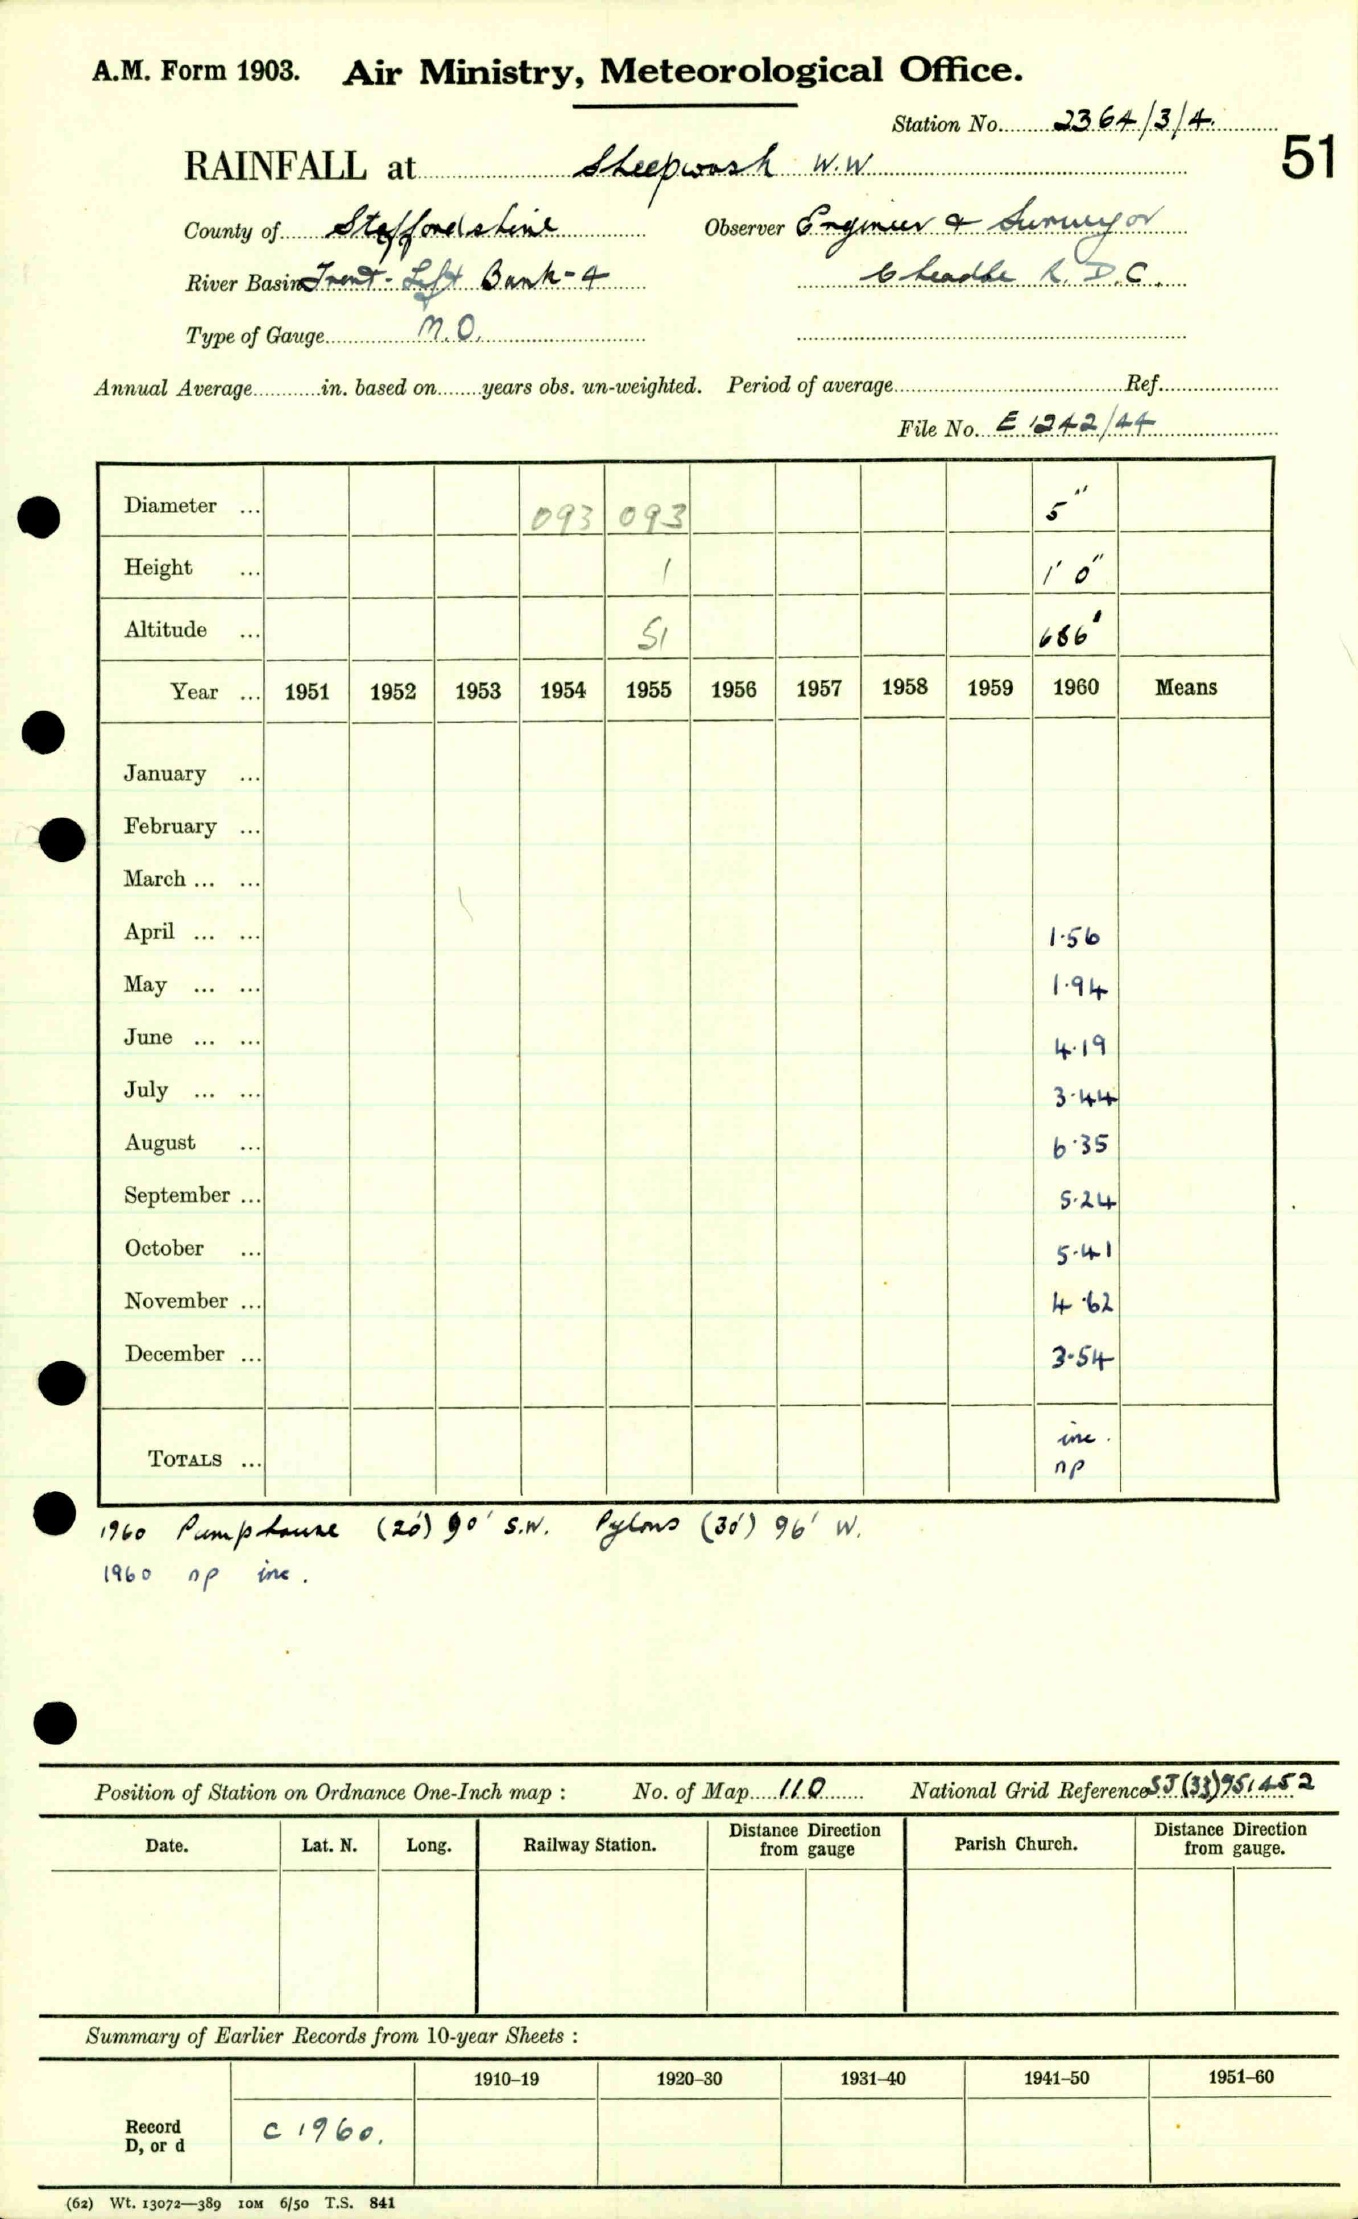 A.M. Form 1903. Air Ministry, Meteorological Office.
Station No. 2364/3/4.
51
RAINFALL at Sheepwash W.W
County of Staffordshire Observer Engineer & Surveyor
River Basin Trent - Left Bank - 4 Cheadle R.D.C.
Type of Gauge M.O.
Annual Average in. based on years obs. un-weighted. Period of average Ref.
File No. E 1242/44
Diameter ... 093 093 5"
Height ... 1 1' 0"
Altitude ... 51 686'
Year ... 1951 1952 1953 1954 1955 1956 1957 1958 1959 1960 Means
January ...
February ...
March ... ...
April ... ... 1.56
May ... ... 1.94
June ... ... 4.19
July ... ... 3.44
August ... 6.35
September ... 5.24
October ... 5.41
November ... 4.62
December ... 3.54
TOTALS ... inc. np
1960 Pumphouse (20') 90' S.W. Pylons (30') 96' W.
1960 np inc.
Position of Station on Ordnance One-Inch map : No. of Map 110 National Grid Reference SJ(33)951452
Date. Lat. N. Long. Railway Station. Distance from Direction gauge Parish Church. Distance from Direction gauge.
Summary of Earlier Records from 10-year Sheets :
1910–19 1920–30 1931–40 1941–50 1951–60
Record D, or d C 1960.
(62) Wt. 13072—389 10M 6/50 T.S. 841